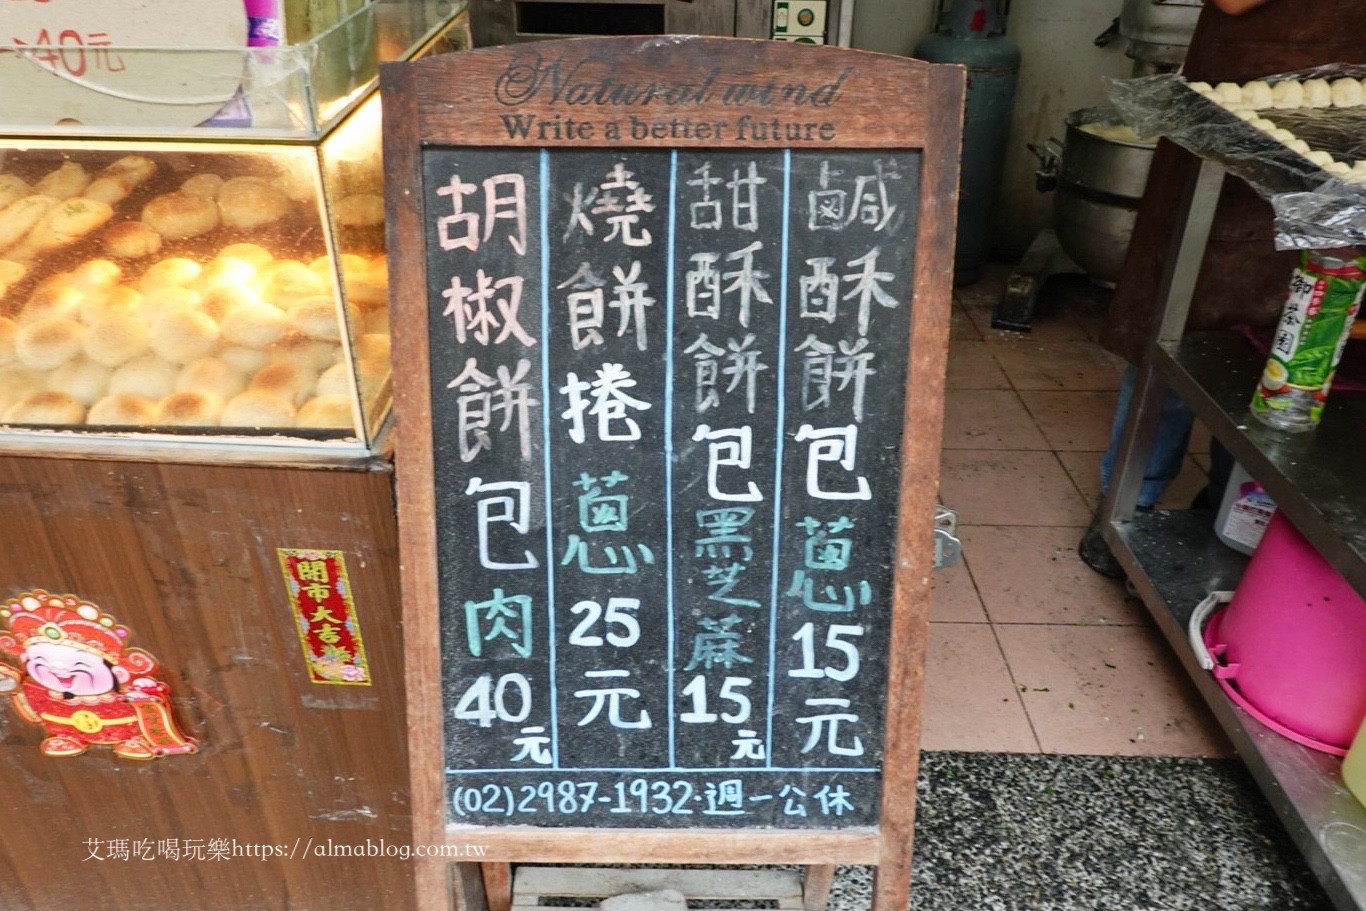 40元
Natural wind
Write a better future
鹹酥餅包蔥15元
甜酥餅包黑芝蔴15元
燒餅捲蔥25元
胡椒餅包肉40元
(02)2987-1932·週一公休
開市大吉
御茶園
艾瑪吃喝玩樂https://almablog.com.tw